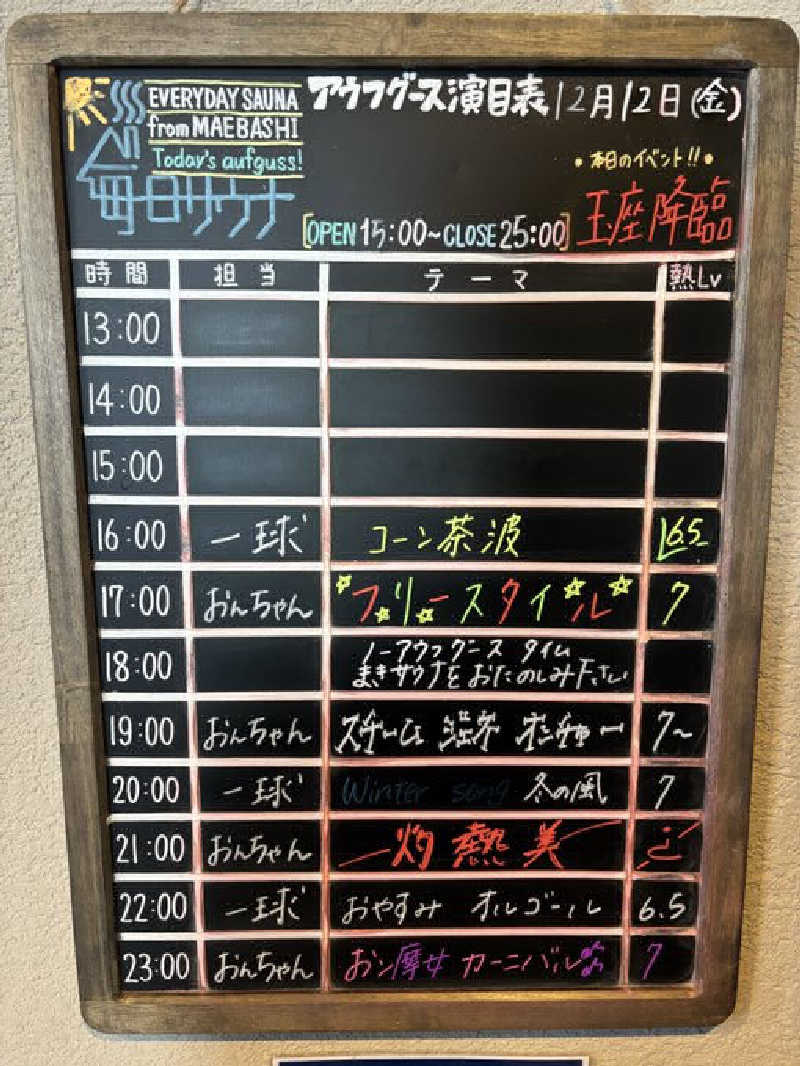 EVERYDAY SAUNA
from MAEBASHI
Today's aufguss!
毎日サウナ
アウフグース演目表 12月12日(金)
•本日のイベント!!•
玉座降臨
[OPEN 15:00~CLOSE 25:00]
時間 担当 テーマ 熱Lv
13:00
14:00
15:00
16:00 一球 コーン茶波 6.5
17:00 おんちゃん フリースタイル 7
18:00 ノーアウフグース タイム
まきサウナをおたのしみ下さい
19:00 おんちゃん 7~
20:00 一球 Winter song 冬の風 7
21:00 おんちゃん 灼熱美
22:00 一球 おやすみ オルゴール 6.5
23:00 おんちゃん おン摩女 カーニバル 7